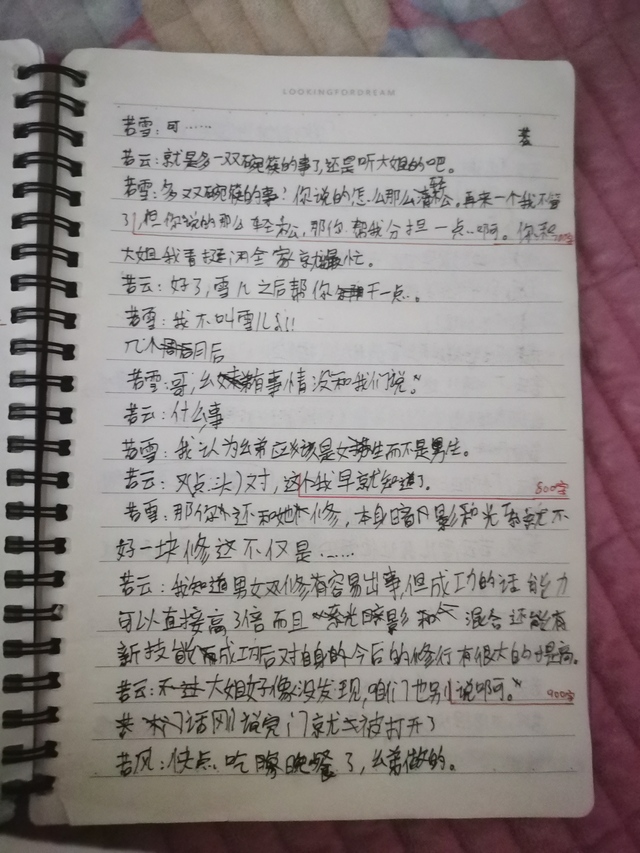 LOOKINGFORDREAM
若雪：可……
若
若云：就是多一双碗筷的事了，还是听大姐的吧。
若雪：多一双碗筷的事？你说的怎么那么轻松，再来一个我不管
了，但你说的那么轻松，那你帮我分担一点啊。你和
大姐我看挺闲全家就我最忙。
若云：好了，雪儿之后帮你干一点。
若雪：我不叫雪儿！！
几个月后
若雪：哥，幺弟有事情没和我们说。
若云：什么事
若雪：我认为幺弟应该是女生而不是男生。
若云：(点头)对，这个我早就知道了。
800字
若雪：那你还和她修，本身暗影和光就不
好一块修这不仅是……
若云：我知道男女双修有容易出事，但成功的话能力
可以直接高3倍而且光暗影和混合还能有
新技能而成功后对自身的今后的修行有很大的提高。
若云：不过大姐好像没发现，咱们也别说啊。
900字
话刚说完门就被打开了
若风：快点吃晚餐了，幺弟做的。